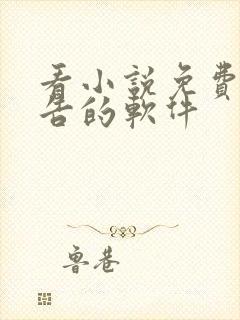 看小説免費
告的軟件
鲁巷